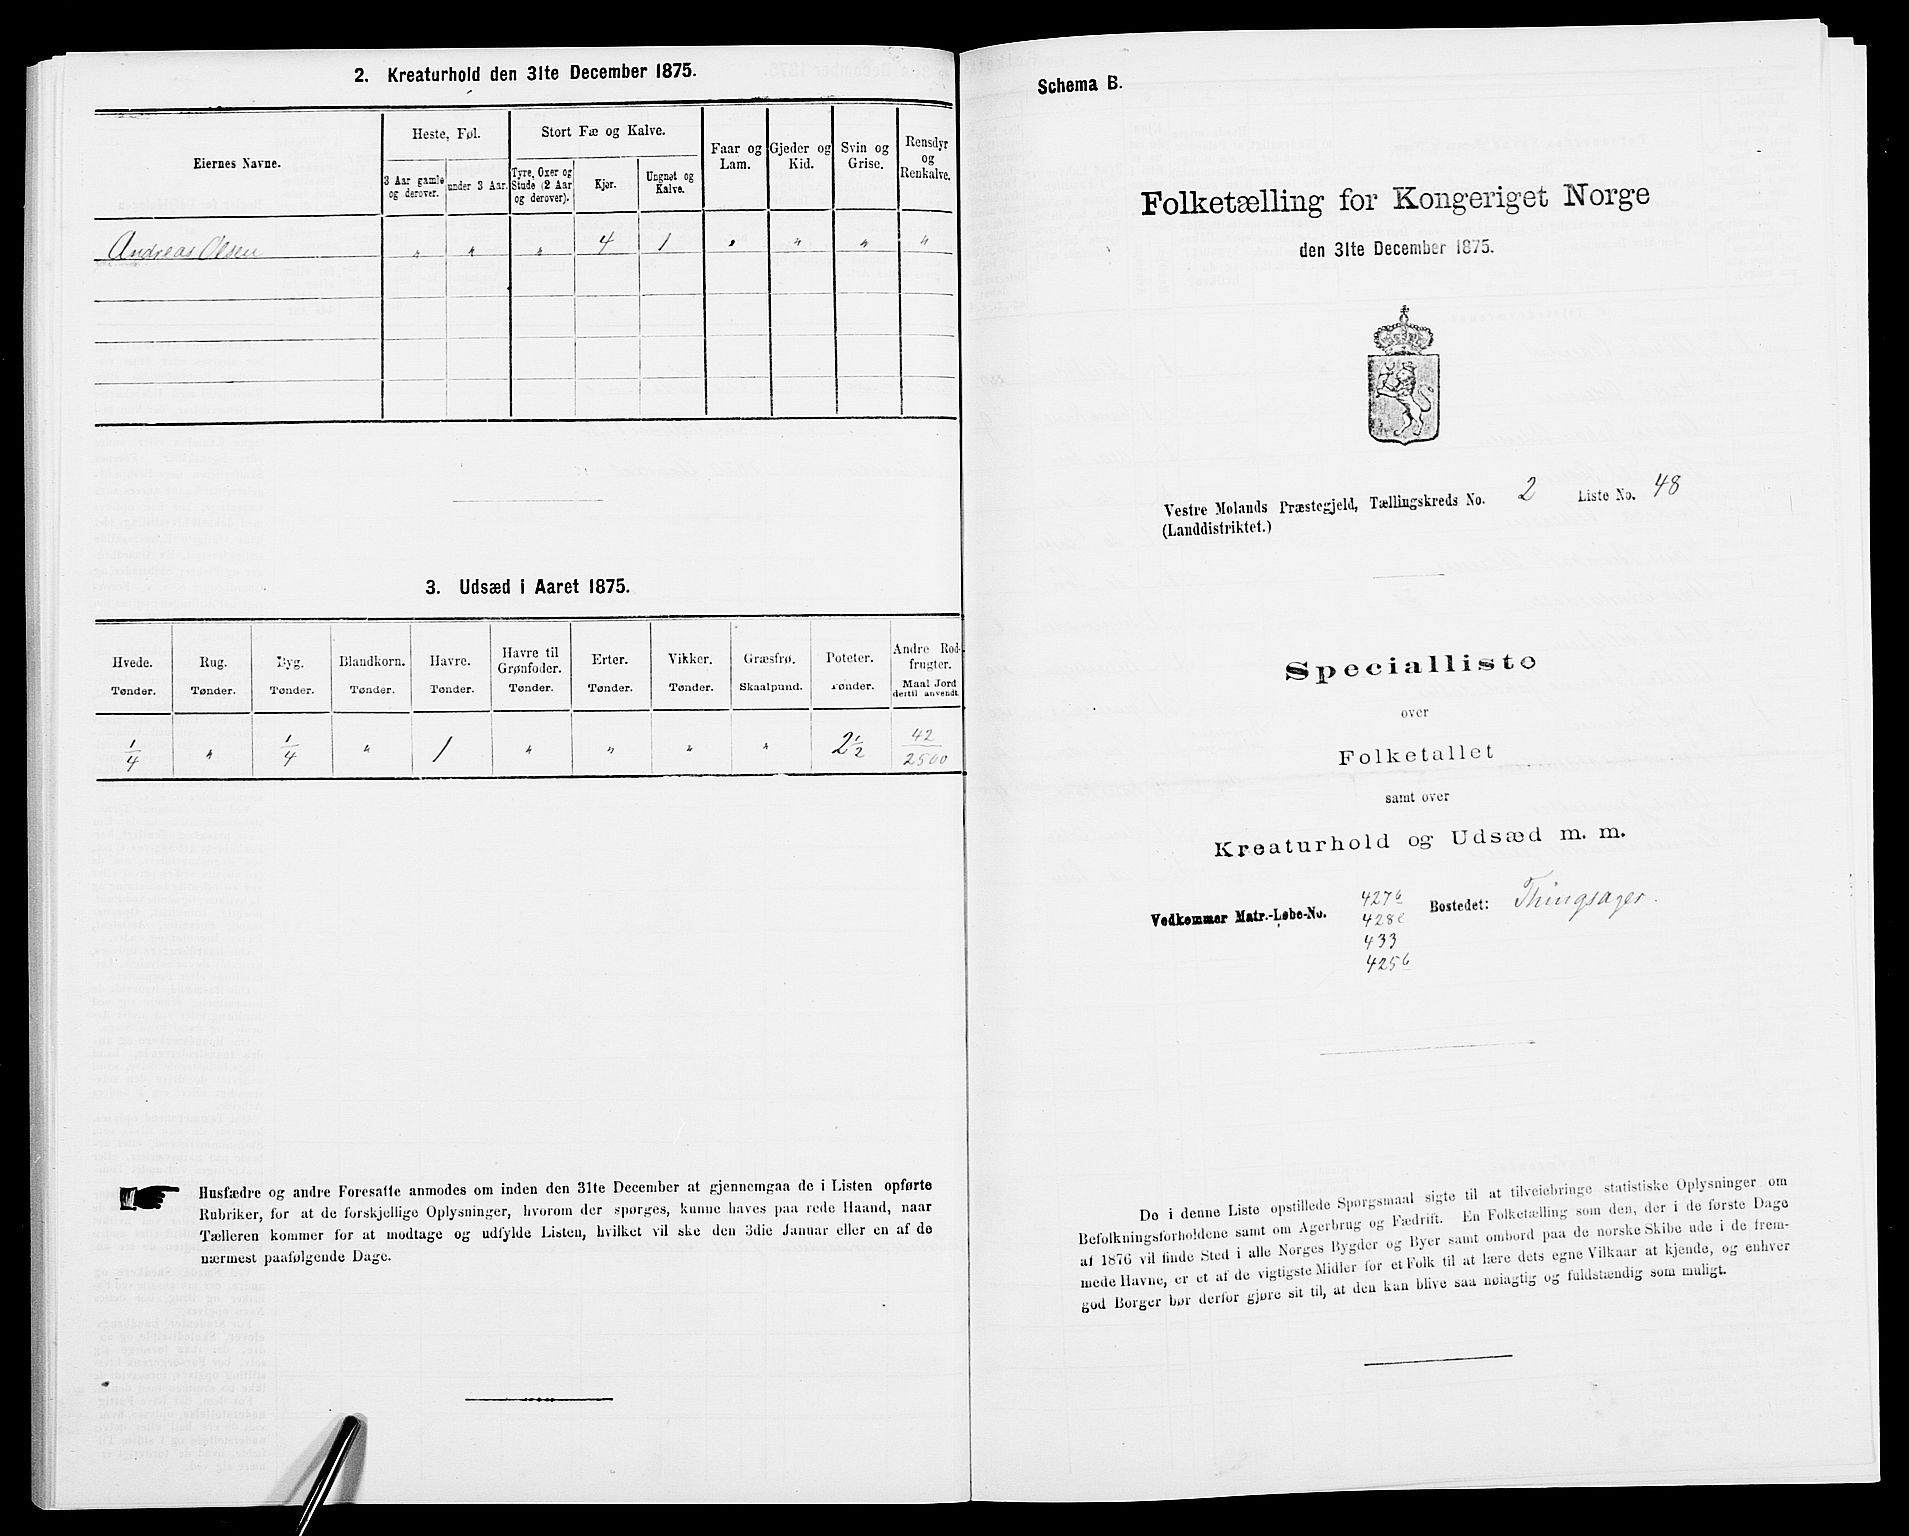 2. Kreaturhold den 31te December 1875.
Eiernes Navne.
Heste, Føl.
Stort Fæ og Kalve.
Faar og Lam.
Gjeder og Kid.
Svin og Grise.
Rensdyr og Renkalve.
3 Aar gamle og derover.
under 3 Aar.
Tyre, Oxer og Stude (2 Aar og derover).
Kjør.
Ungnøt og Kalve.
Andreas Olsen " " " 4 1 " " " "
3. Udsæd i Aaret 1875.
Hvede. Rug. Byg. Blandkorn. Havre. Havre til Grønfoder. Erter. Vikker. Græsfrø. Poteter. Andre Rodfrugter.
Tønder. Tønder. Tønder. Tønder. Tønder. Tønder. Tønder. Tønder. Skaalpund. Tønder. Maal Jord dertil anvendt.
1/4 " 1/4 " 1 " " " " 2 1/2 42/2500
Husfædre og andre Foresatte anmodes om inden den 31te December at gjennemgaa de i Listen opførte
Rubriker, for at de forskjellige Oplysninger, hvorom der spørges, kunne haves paa rede Haand, naar
Tælleren kommer for at modtage og udfylde Listen, hvilket vil ske den 3die Januar eller en af de
nærmest paafølgende Dage.
Schema B.
Folketælling for Kongeriget Norge
den 31te December 1875.
Vestre Molands Præstegjeld, Tællingskreds No. 2 Liste No. 48
(Landdistriktet.)
Specialliste
over
Folketallet
samt over
Kreaturhold og Udsæd m. m.
Vedkommer Matr.-Løbe-No. 427b Bostedet: Thingsager.
428c
433
425b
De i denne Liste opstillede Spørgsmaal sigte til at tilveiebringe statistiske Oplysninger om
Befolkningsforholdene samt om Agerbrug og Fædrift. En Folketælling som den, der i de første Dage
af 1876 vil finde Sted i alle Norges Bygder og Byer samt ombord paa de norske Skibe ude i de frem-
mede Havne, er et af de vigtigste Midler for et Folk til at lære dets egne Vilkaar at kjende, og enhver
god Borger bør derfor gjøre sit til, at den kan blive saa nøiagtig og fuldstændig som muligt.